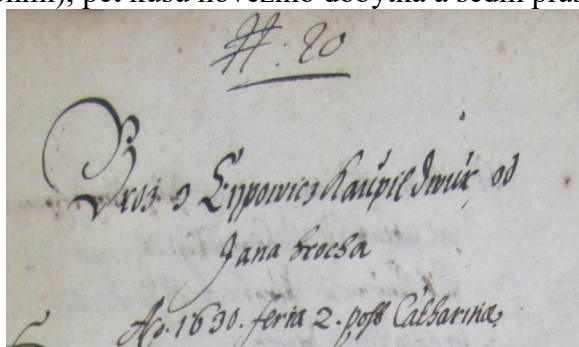 pět kusů hovězího dobytka a sedm
#: 80
z Lypowicz kaupil dwůr od
Jana hrocha
Ao. 1630. feria 2. post Catharinæ